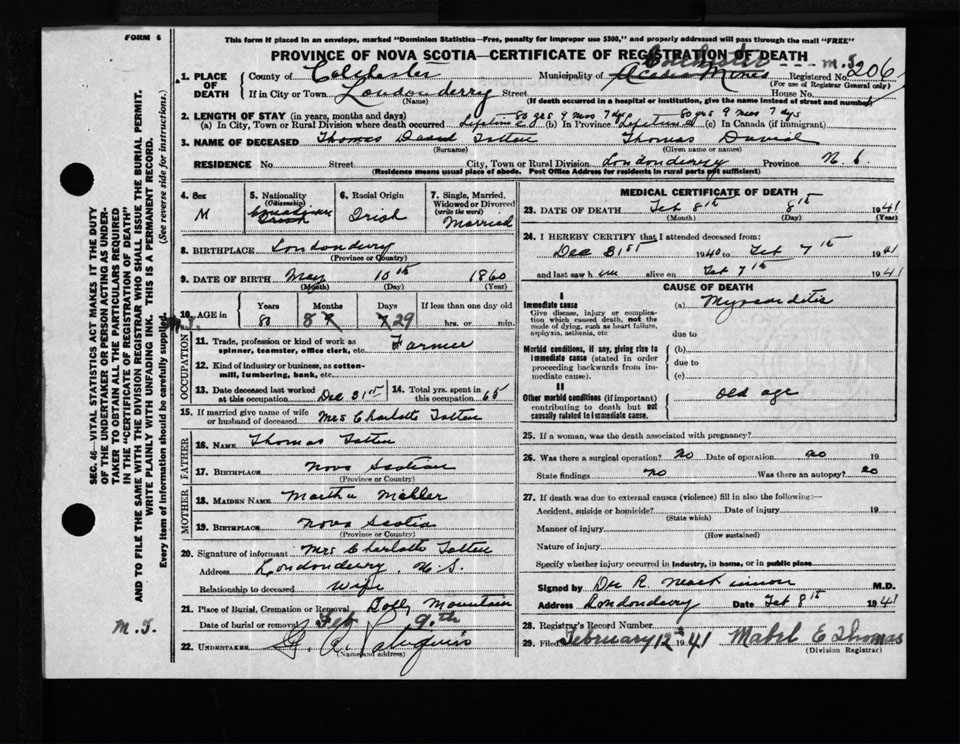 FORM 6
This form if placed in an envelope, marked "Dominion Statistics—Free, penalty for improper use $300," and properly addressed will pass through the mail "FREE"
PROVINCE OF NOVA SCOTIA—CERTIFICATE OF REGISTRATION OF DEATH
1. PLACE OF DEATH
County of Colchester Municipality of Colchester Acadia Mines Registered No. 206 M.T.
(For use of Registrar General only)
If in City or Town Londonderry Street House No.
(Name) (If death occurred in a hospital or institution, give the name instead of street and number)
2. LENGTH OF STAY (in years, months and days) 80 yrs 9 mos 7 dys 80 yrs 9 mos 7 dys
(a) In City, Town or Rural Division where death occurred Lifetime (b) In Province Lifetime (c) In Canada (if immigrant)
3. NAME OF DECEASED Thomas David Totten Thomas David
(Surname) (Given name or names)
RESIDENCE No. Street City, Town or Rural Division Londonderry Province N.S.
(Residence means usual place of abode. Post Office Address for residents in rural parts not sufficient)
4. Sex M
5. Nationality (Citizenship) Canadian
6. Racial Origin Irish
7. Single, Married, Widowed or Divorced (write the word) Married
8. BIRTHPLACE Londonderry
(Province or Country)
9. DATE OF BIRTH May 10th 1860
(Month) (Day) (Year)
10. AGE in Years 80 Months 8 9 Days 7 29 If less than one day old hrs. or min.
M.T.
OCCUPATION
11. Trade, profession or kind of work as spinner, teamster, office clerk, etc. Farmer
12. Kind of industry or business, as cotton-mill, lumbering, bank, etc.
13. Date deceased last worked at this occupation Dec 31st
14. Total yrs. spent in this occupation 65
15. If married give name of wife or husband of deceased Mrs Charlotte Totten
FATHER
16. NAME Thomas Totten
17. BIRTHPLACE Nova Scotian
(Province or Country)
MOTHER
18. MAIDEN NAME Martha Mahler
19. BIRTHPLACE Nova Scotia
(Province or Country)
20. Signature of informant Mrs Charlotte Totten
Address Londonderry, N.S.
Relationship to deceased wife
21. Place of Burial, Cremation or Removal Folly Mountain
Date of burial or removal Feb 9.th
22. UNDERTAKER G. A.
(Name and address)
MEDICAL CERTIFICATE OF DEATH
23. DATE OF DEATH Feb 8th 8th 1941
(Month) (Day) (Year)
24. I HEREBY CERTIFY that I attended deceased from:
Dec 31st 1940 to Feb 7th 1941
and last saw him alive on Feb 7th 1941
CAUSE OF DEATH
I
Immediate cause
Give disease, injury or complication which caused death, not the mode of dying, such as heart failure, asphyxia, asthenia, etc
(a) Myocarditis
due to
Morbid conditions, if any, giving rise to immediate cause (stated in order proceeding backwards from immediate cause).
(b)
due to
(c)
II
Other morbid conditions (if important) contributing to death but not causally related to immediate cause.
old age
25. If a woman, was the death associated with pregnancy?
26. Was there a surgical operation? No Date of operation no 19
State findings no Was there an autopsy? no
27. If death was due to external causes (violence) fill in also the following:—
Accident, suicide or homicide? Date of injury 19
(State which)
Manner of injury
(How sustained)
Nature of injury
Specify whether injury occurred in industry, in home, or in public place
Signed by Dr R. MacKinnon M.D.
Address Londonderry Date Feb 8th 1941
28. Registrar's Record Number
29. Filed February 12th 1941 Mabel E Thomas
(Division Registrar)
SEC. 46—VITAL STATISTICS ACT MAKES IT THE DUTY
OF THE UNDERTAKER OR PERSON ACTING AS UNDERTAKER
TO OBTAIN ALL THE PARTICULARS REQUIRED
IN THE "CERTIFICATE OF REGISTRATION OF DEATH"
AND TO FILE THE SAME WITH THE DIVISION REGISTRAR WHO SHALL ISSUE THE BURIAL PERMIT.
WRITE PLAINLY WITH UNFADING INK. THIS IS A PERMANENT RECORD.
Every item of information should be carefully supplied. (See reverse side for instructions.)
M.T.